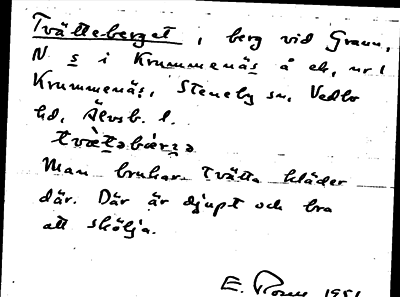 Tvätteberget, berg vid Grann,
N s i Krummenäs å ek, nr 1
Krummenäs, Steneby sn, Vedbo
hd, Älvsb. l.
tvæ̀təbær̀ɜə
Man brukar tvätta kläder
där. Där är djupt och bra
att skölja.
E. 1951